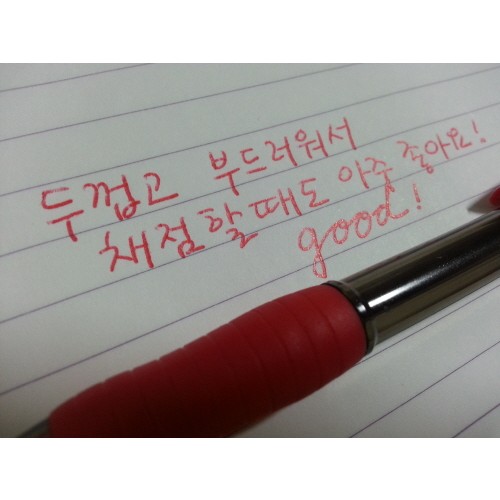 두껍고 부드러워서
채점할때도 아주 좋아요!
good!